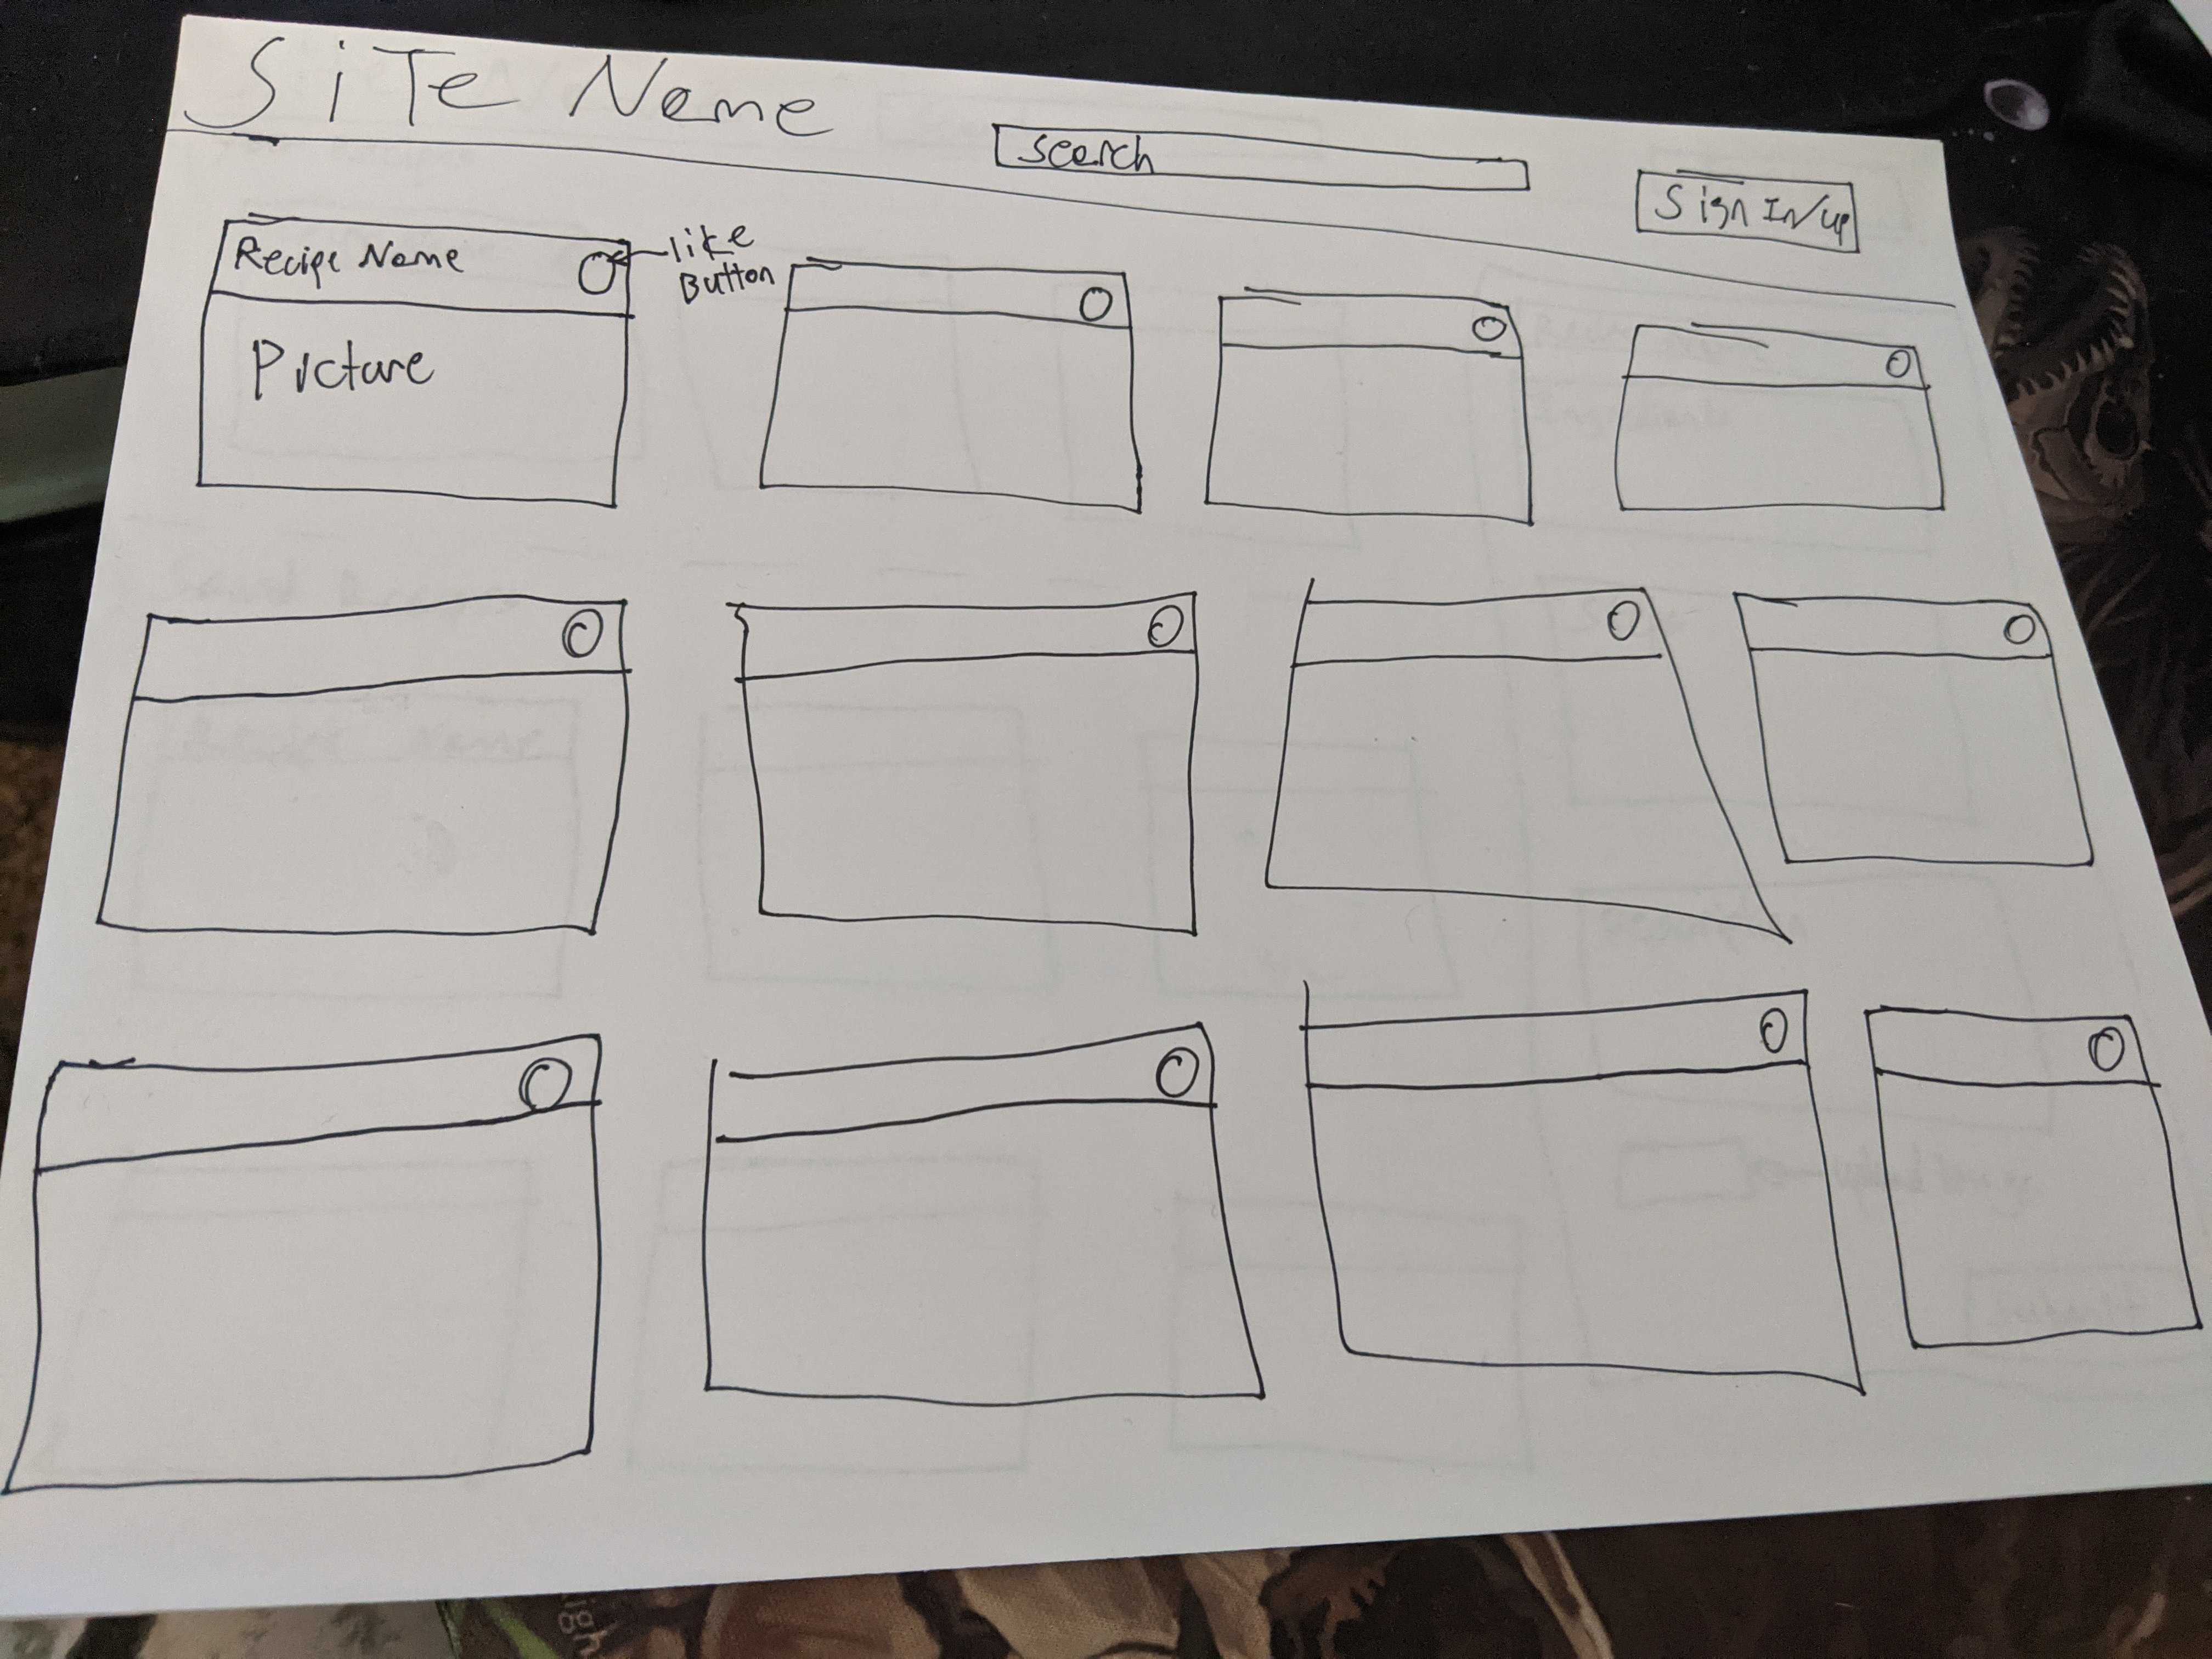 SiTe Name
search
Sign In/up
Recipe Name
like
Button
Picture